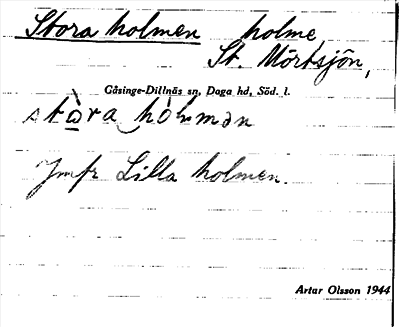 Stora holmen holme,
St. Mörtsjön,
Gåsinge-Dillnäs sn, Daga hd, Söd. l.
Jmfr Lilla holmen.
Artar Olsson 1944